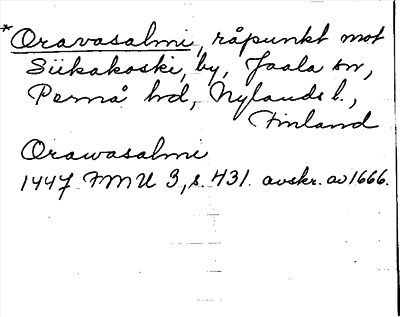 *Oravasalmi, råpunkt mot
Siikakoski, by, Jaala sn,
Pernå hd, Nylands l.,
Finland
Orawasalmi
1447 FMU 3, s. 431. avskr. av 1666.